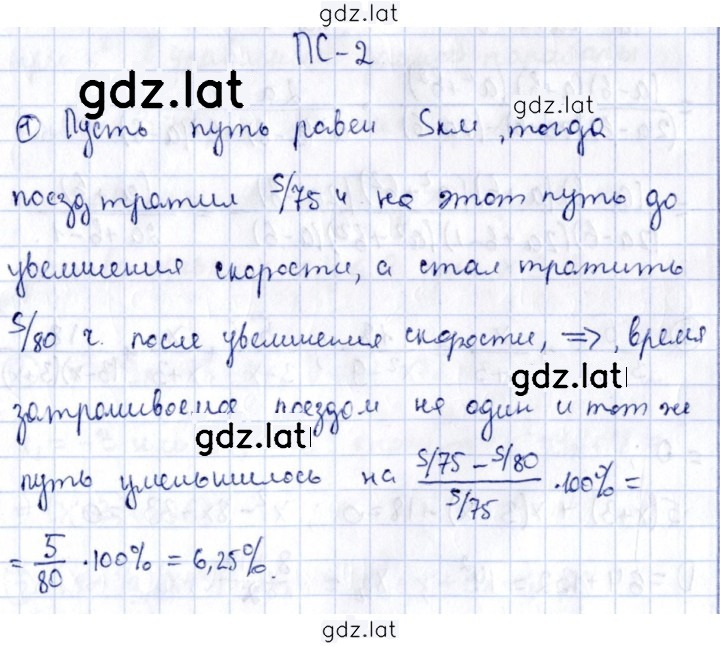 gdz.lat
ПС-2
gdz.lat
gdz.lat
① Пусть путь равен S км, тогда
поезд тратил S/75 ч на этот путь до
увеличения скорости, а стал тратить
S/80 ч. после увеличения скорости, =>, время
gdz.lat
затрачиваемое поездом на один и тот же
gdz.lat
путь уменьшилось на (S/75 - S/80)/(S/75) · 100% =
= 5/80 · 100% = 6,25%.
gdz.lat